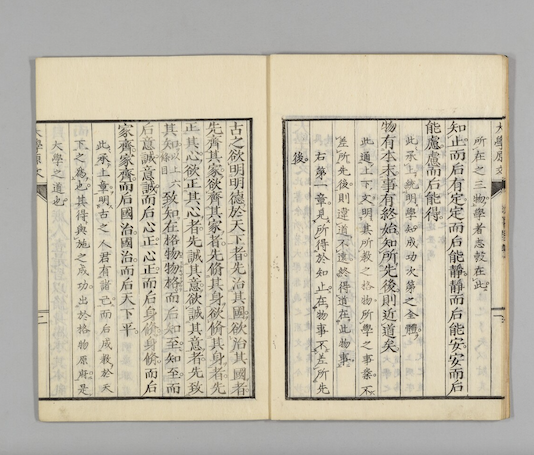 大學原文
所在之三物學者志敦在此
知止而后有定定而后能静静而后能安安而后
能慮慮而后能得
此承上統明學知成功次第之全體
物有本末事有終始知所先後則近道矣
此通上下文明其所教之格物所學之事業不
差所先後則違道不遠終得道在此物事
右第一章見所得於知止在物事不差所先
後
古之欲明明德於天下者先治其國欲治其國者
先齊其家欲齊其家者先脩其身欲脩其身者先
正其心欲正其心者先誠其意欲誠其意者先致
其知以上六條目致知在格物物格而后知至知至而
后意誠意誠而后心正心正而后身脩身脩而后
家齊家齊而后國治國治而后天下平
此承上章明古之人君有諸己而后成教於天
下之爲也其得與施之成功出於格物原府是
大學之道也
大學原文
二